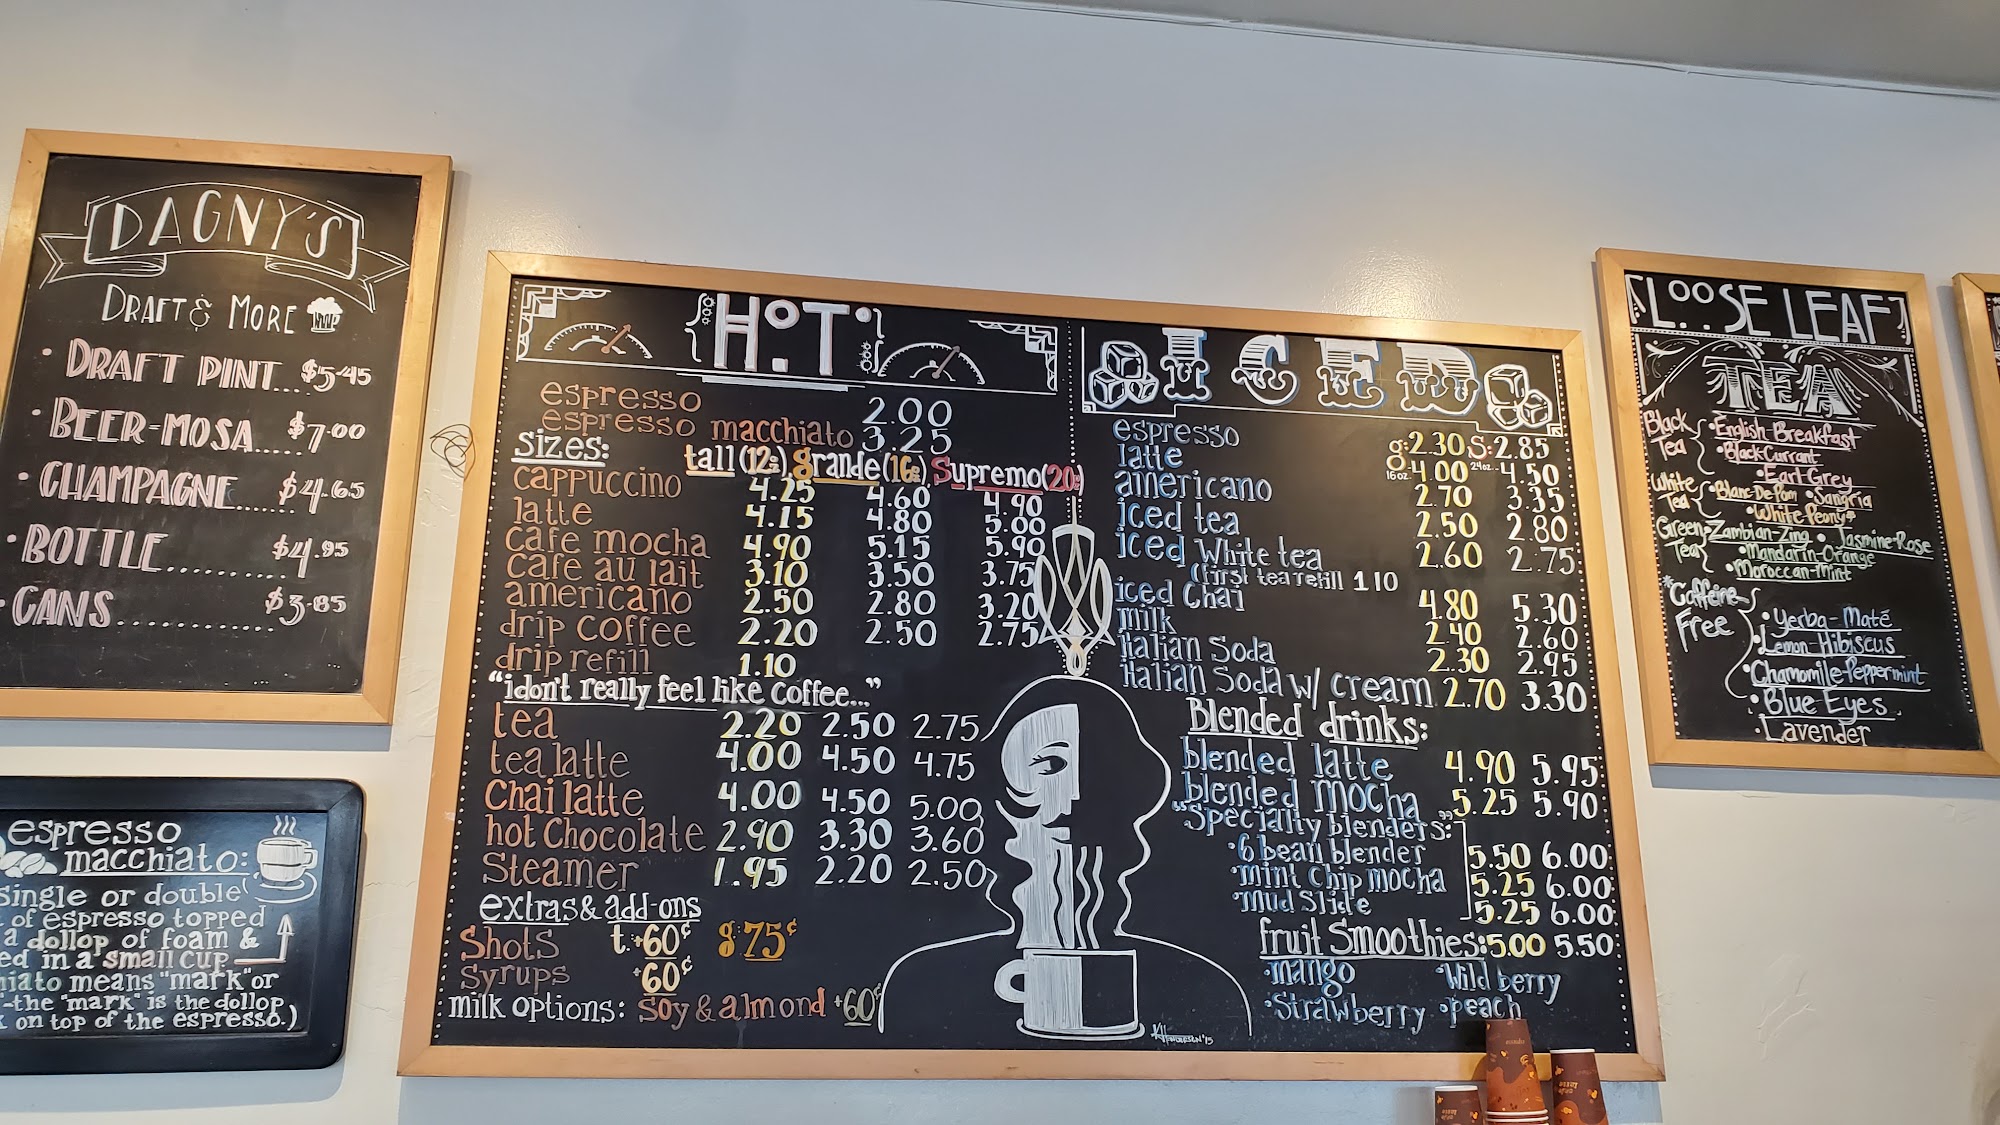 DAGNY'S
DRAFT & MORE
• DRAFT PINT...$5.45
• BEER-MOSA.....$7.00
• CHAMPAGNE.......$4.65
• BOTTLE...........$4.95
• CANS.............$3.85
espresso
macchiato:
single or double
of espresso topped
a dollop of foam &
ed in a small cup
means "mark" or
-the "mark" is the dollop
on top of the espresso.)
HOT
espresso 2.00
espresso macchiato 3.25
sizes: tall (12oz), grande (16oz), Supremo (20oz)
cappuccino 4.25 4.60 4.90
latte 4.15 4.80 5.00
cafe mocha 4.90 5.15 5.90
cafe au lait 3.10 3.50 3.75
americano 2.50 2.80 3.20
drip coffee 2.20 2.50 2.75
drip refill 1.10
"i don't really feel like coffee..."
tea 2.20 2.50 2.75
tea latte 4.00 4.50 4.75
Chai latte 4.00 4.50 5.00
hot Chocolate 2.90 3.30 3.60
Steamer 1.95 2.20 2.50
extras & add-ons
Shots t:+60¢ g:75¢
Syrups +60¢
milk options: soy & almond +60¢
ICED
espresso g:2.30 S:2.85
latte 16oz. 4.00 24oz. 4.50
americano 2.70 3.35
iced tea 2.50 2.80
iced White tea 2.60 2.75
(first tea refill 1.10
iced Chai 4.80 5.30
milk 2.40 2.60
italian Soda 2.30 2.95
italian Soda w/ cream 2.70 3.30
Blended drinks:
blended latte 4.90 5.95
blended mocha 5.25 5.90
"Specialty blenders":
• 6 bean blender 5.50 6.00
• mint chip mocha 5.25 6.00
• mud Slide 5.25 6.00
fruit Smoothies: 5.00 5.50
• mango • Wild berry
• Strawberry • peach
KHenderson '15
LOOSE LEAF
TEA
Black Tea
• English Breakfast
• Black Currant
• Earl Grey
White Tea
• Blanc-De-Pom • Sangria
• White Peony
Green Tea
• Zambian-Zing • Jasmine-Rose
• Mandarin-Orange
• Moroccan-Mint
*Caffeine Free
• Yerba-Maté
• Lemon Hibiscus
• Chamomile-Peppermint
• Blue Eyes
• Lavender